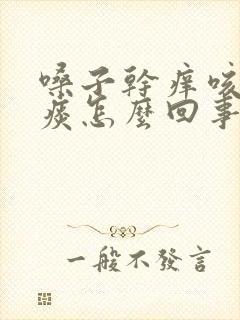 嗓子幹癢咳
痰怎麼回事
一般不發言